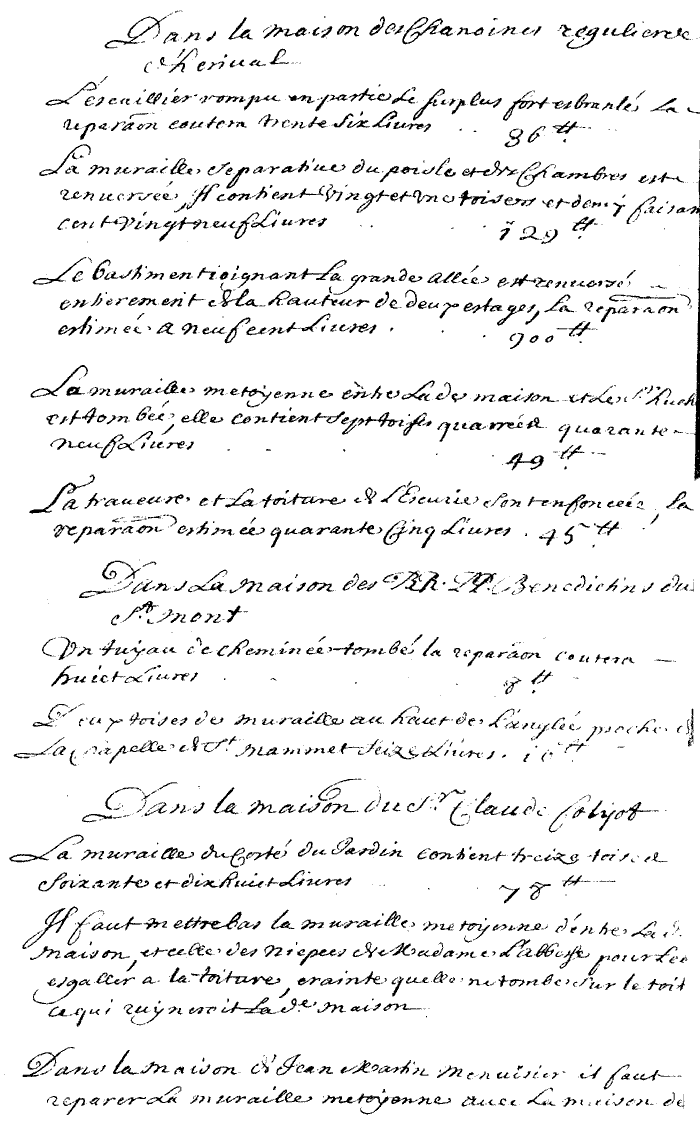 Dans la maison des Chanoines reguliers de
Cherival
L'escaillier rompu en partie le surplus fort esbranlé la
reparaõn coutera trente six Livres . . 36 tt
La muraille separative du poisle et des Chambres est
renversée, Il contient vingt et une toisens et demÿ faisan
cent vingt neuf Livres . . 129 tt
Le bastiment ioignant la grande allée est renversé
entierement de la hauteur de deux estages, la reparaõn
estimée a neuf cent Livres . 900 tt
La muraille metoyenne entre lade maison et le Sr
est tombée, elle contient sept toises quarrées quarante
neuf Livres . . 49 tt
La traveure et la toiture de l'Escurie sont enfoncées, la
reparaõn estimée quarante Cinq Livres . 45 tt
Dans la maison des RR. PP. Benedictins du
St mont
Un tuyau de cheminée tombé la reparaõn coutera
huict Livres . . 8 tt
Deux toises de muraille au haut de l'anglée proche de
La Chapelle de St mammet Seize Livres . 16 tt
Dans la maison du Sr Claude Colijot
La muraille du Costé du Jardin contient treize toises
Soixante et dix huict Livres . 78 tt
Il faut mettre bas la muraille metoyenne d'entre la d.
maison, et celle des niepces de Madame L'abbesse pour les
esgallir a la toiture, crainte quelle ne tombe sur le toit
ce qui ruyneroit la de maison
Dans la maison de Jean Martin menuisier il faut
reparer la muraille metoyenne avec la maison de